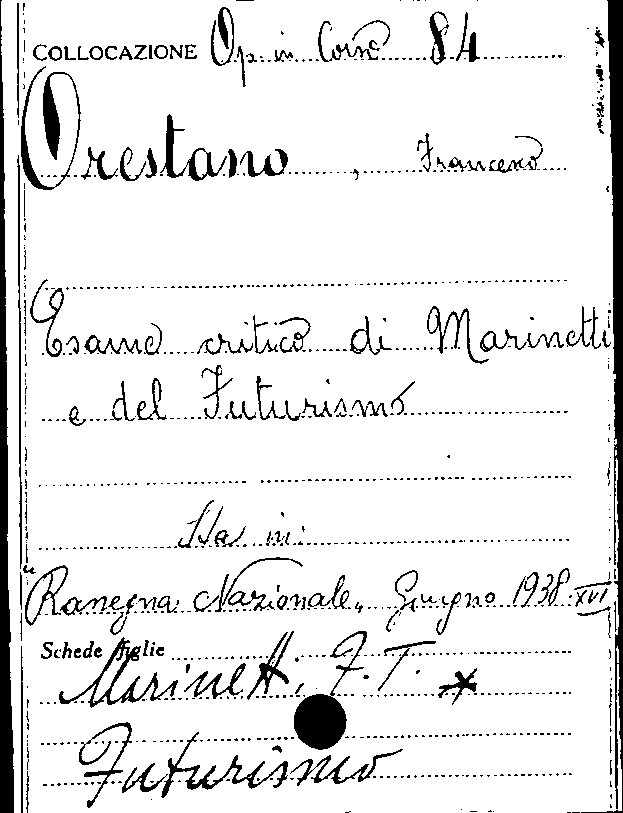 COLLOCAZIONE Op. in Corso 84
Orestano, Francesco
Esame critico di Marinetti
e del Futurismo
Sta in:
"Rassegna Nazionale" Giugno 1938-XVI
Schede figlie
Marinetti, F. T. *
Futurismo